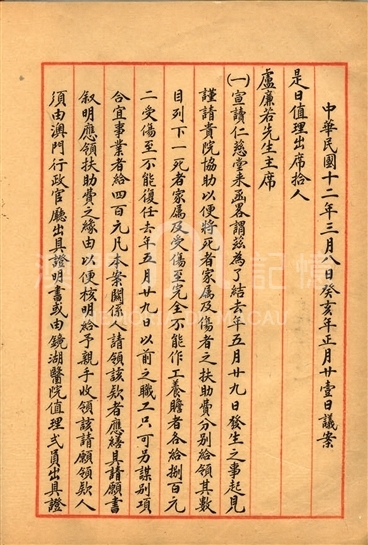 中華民國十二年三月八日癸亥年正月廿壹日議案
是日值理出席拾人
盧廉若先生主席
(一)宣讀仁慈堂來函畧謂茲為了結去年五月廿九日發生之事起見
謹請貴院協助以便將死者家属及傷者之扶助費分别給領其數
目列下一死者家属及受傷至完全不能作工養贍者各給捌百元
二受傷至不能復任去年五月廿九日以前之職工只可另謀别項
合宜事業者給四百元凡本案關係人請領該欵者應繕具請願書
叙明應領扶助費之緣由以便核明給予親手收領該請願領欵人
須由澳門行政官廳出具證明書或由鏡湖醫院值理弍員出具證